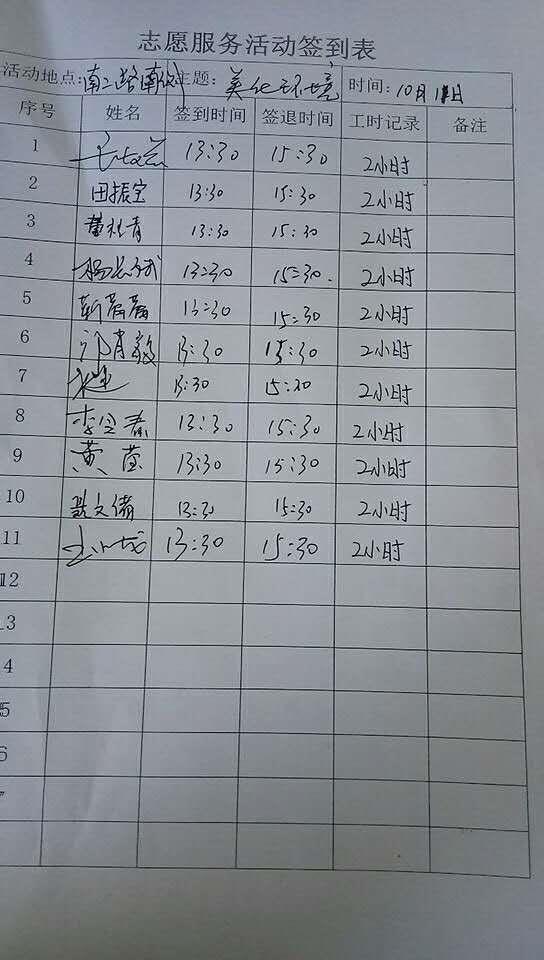 志愿服务活动签到表
活动地点: 南二路南侧 主题: 美化环境 时间: 10月11日
序号 姓名 签到时间 签退时间 工时记录 备注
1 13:30 15:30 2小时
2 田振宝 13:30 15:30 2小时
3 13:30 15:30 2小时
4 13:30 15:30. 2小时
5 靳露露 13:30 15:30 2小时
6 13:30 15:30 2小时
7 13:30 15:30 2小时
8 李宝春 13:30 15:30 2小时
9 黄莹 13:30 15:30 2小时
10 13:30 15:30 2小时
11 13:30 15:30 2小时
12
13
4
5
6